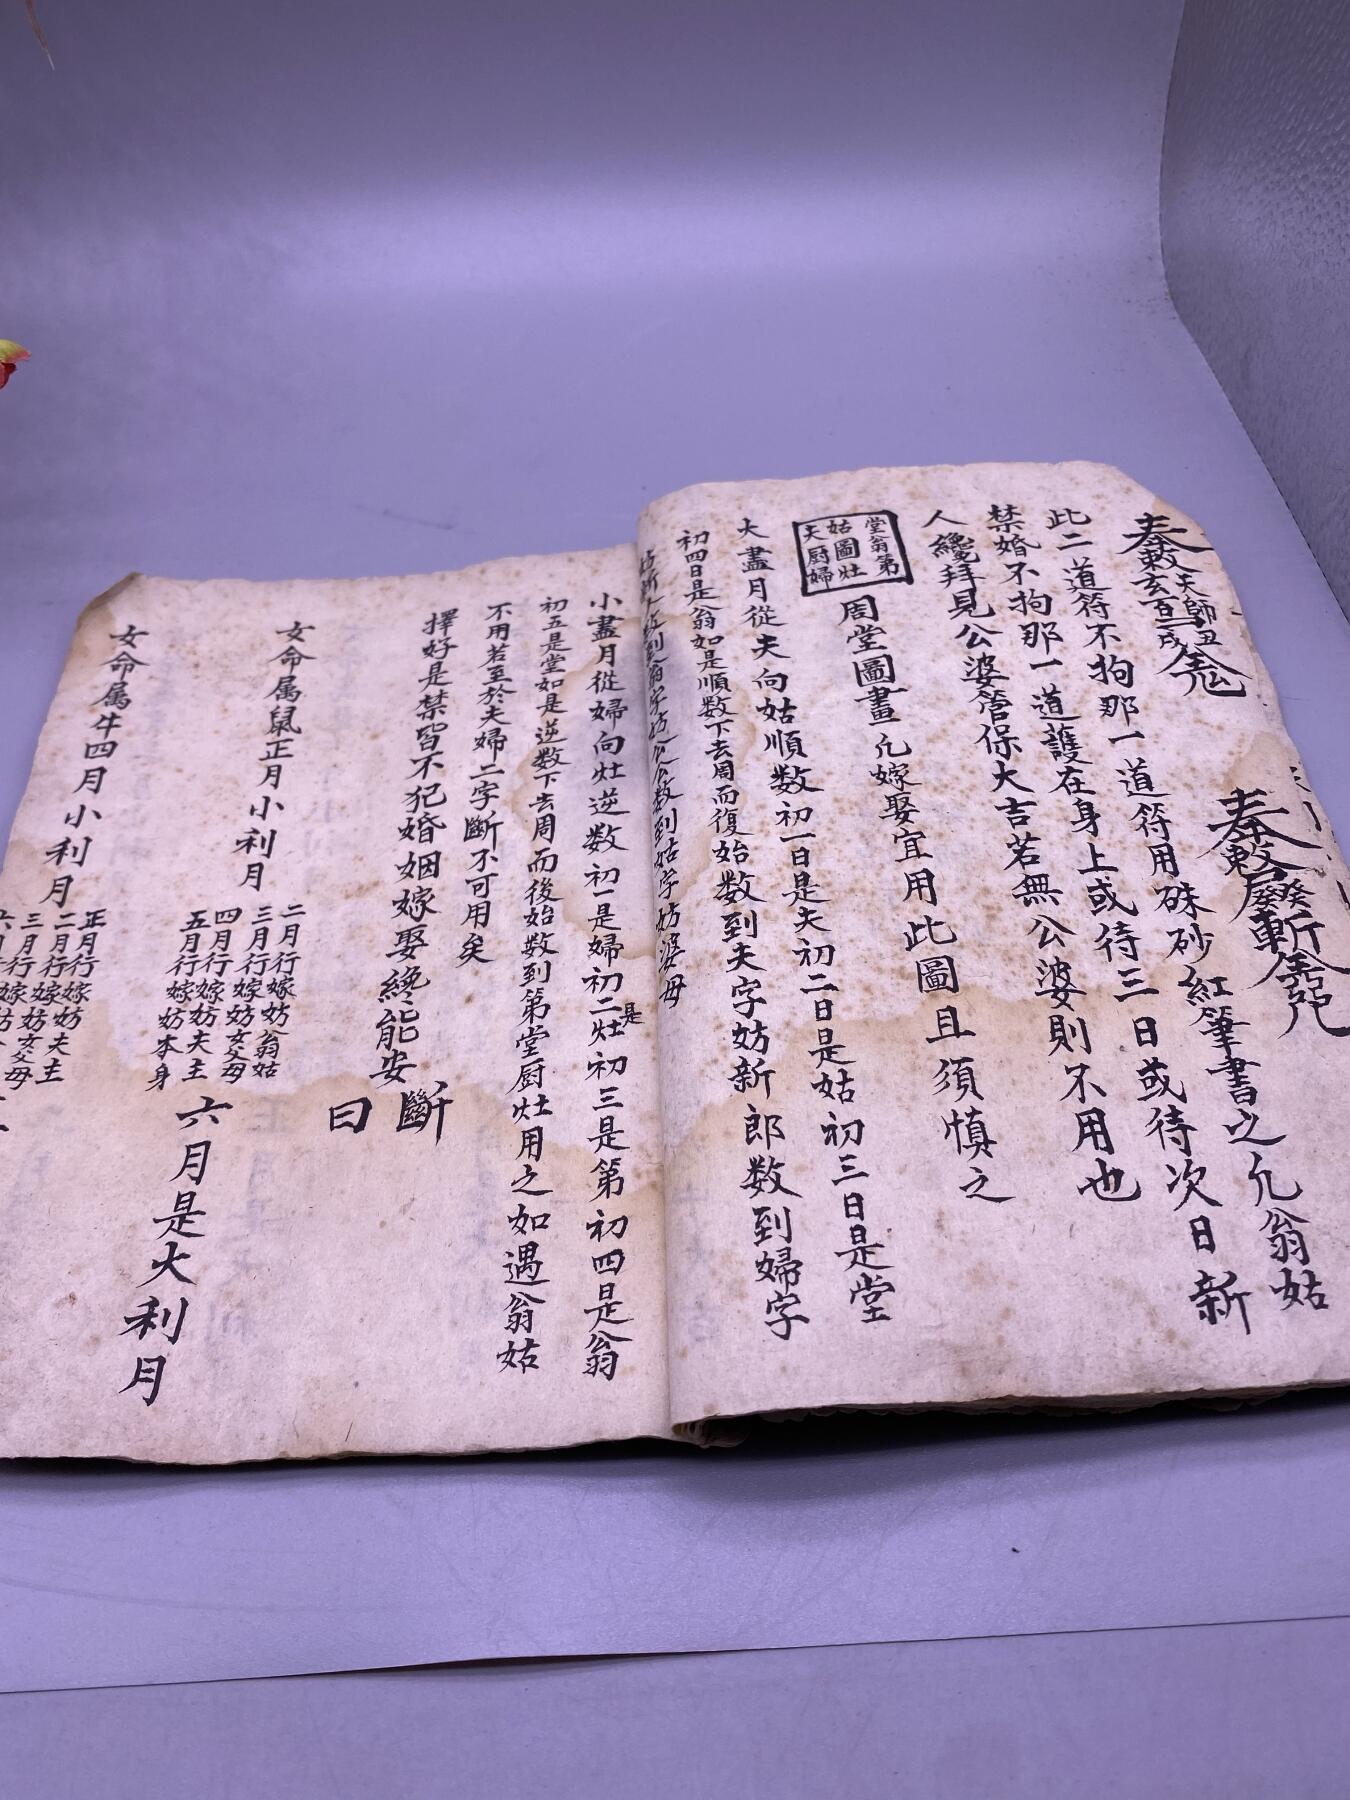 奉敕
此二道符不拘那一道符用硃砂紅筆書之凢翁姑
禁婚不拘那一道護在身上或待三日或待次日新
人纔拜見公婆管保大吉若無公婆則不用也
堂翁第
姑圖灶
夫厨婦
周堂圖畫凢嫁娶宜用此圖且須慎之
大盡月從夫向姑順数初一日是夫初二日是姑初三日是堂
初四日是翁如是順数下去周而復始数到夫字妨新郎数到婦字
到翁字妨公公数到姑字妨婆母
小盡月從婦向灶逆数初一是婦初二是灶初三是第初四是翁
初五是堂如是逆数下去周而後始数到第堂厨灶用之如遇翁姑
不用若至於夫婦二字斷不可用矣
擇好是禁皆不犯婚姻嫁娶纔能安
斷
曰
女命属鼠正月小利月
二月行嫁妨翁姑
三月行嫁妨女父母
四月行嫁妨夫主
五月行嫁妨本身
六月是大利月
女命属牛四月小利月
正月行嫁妨夫主
二月行嫁妨
三月行嫁妨女父母